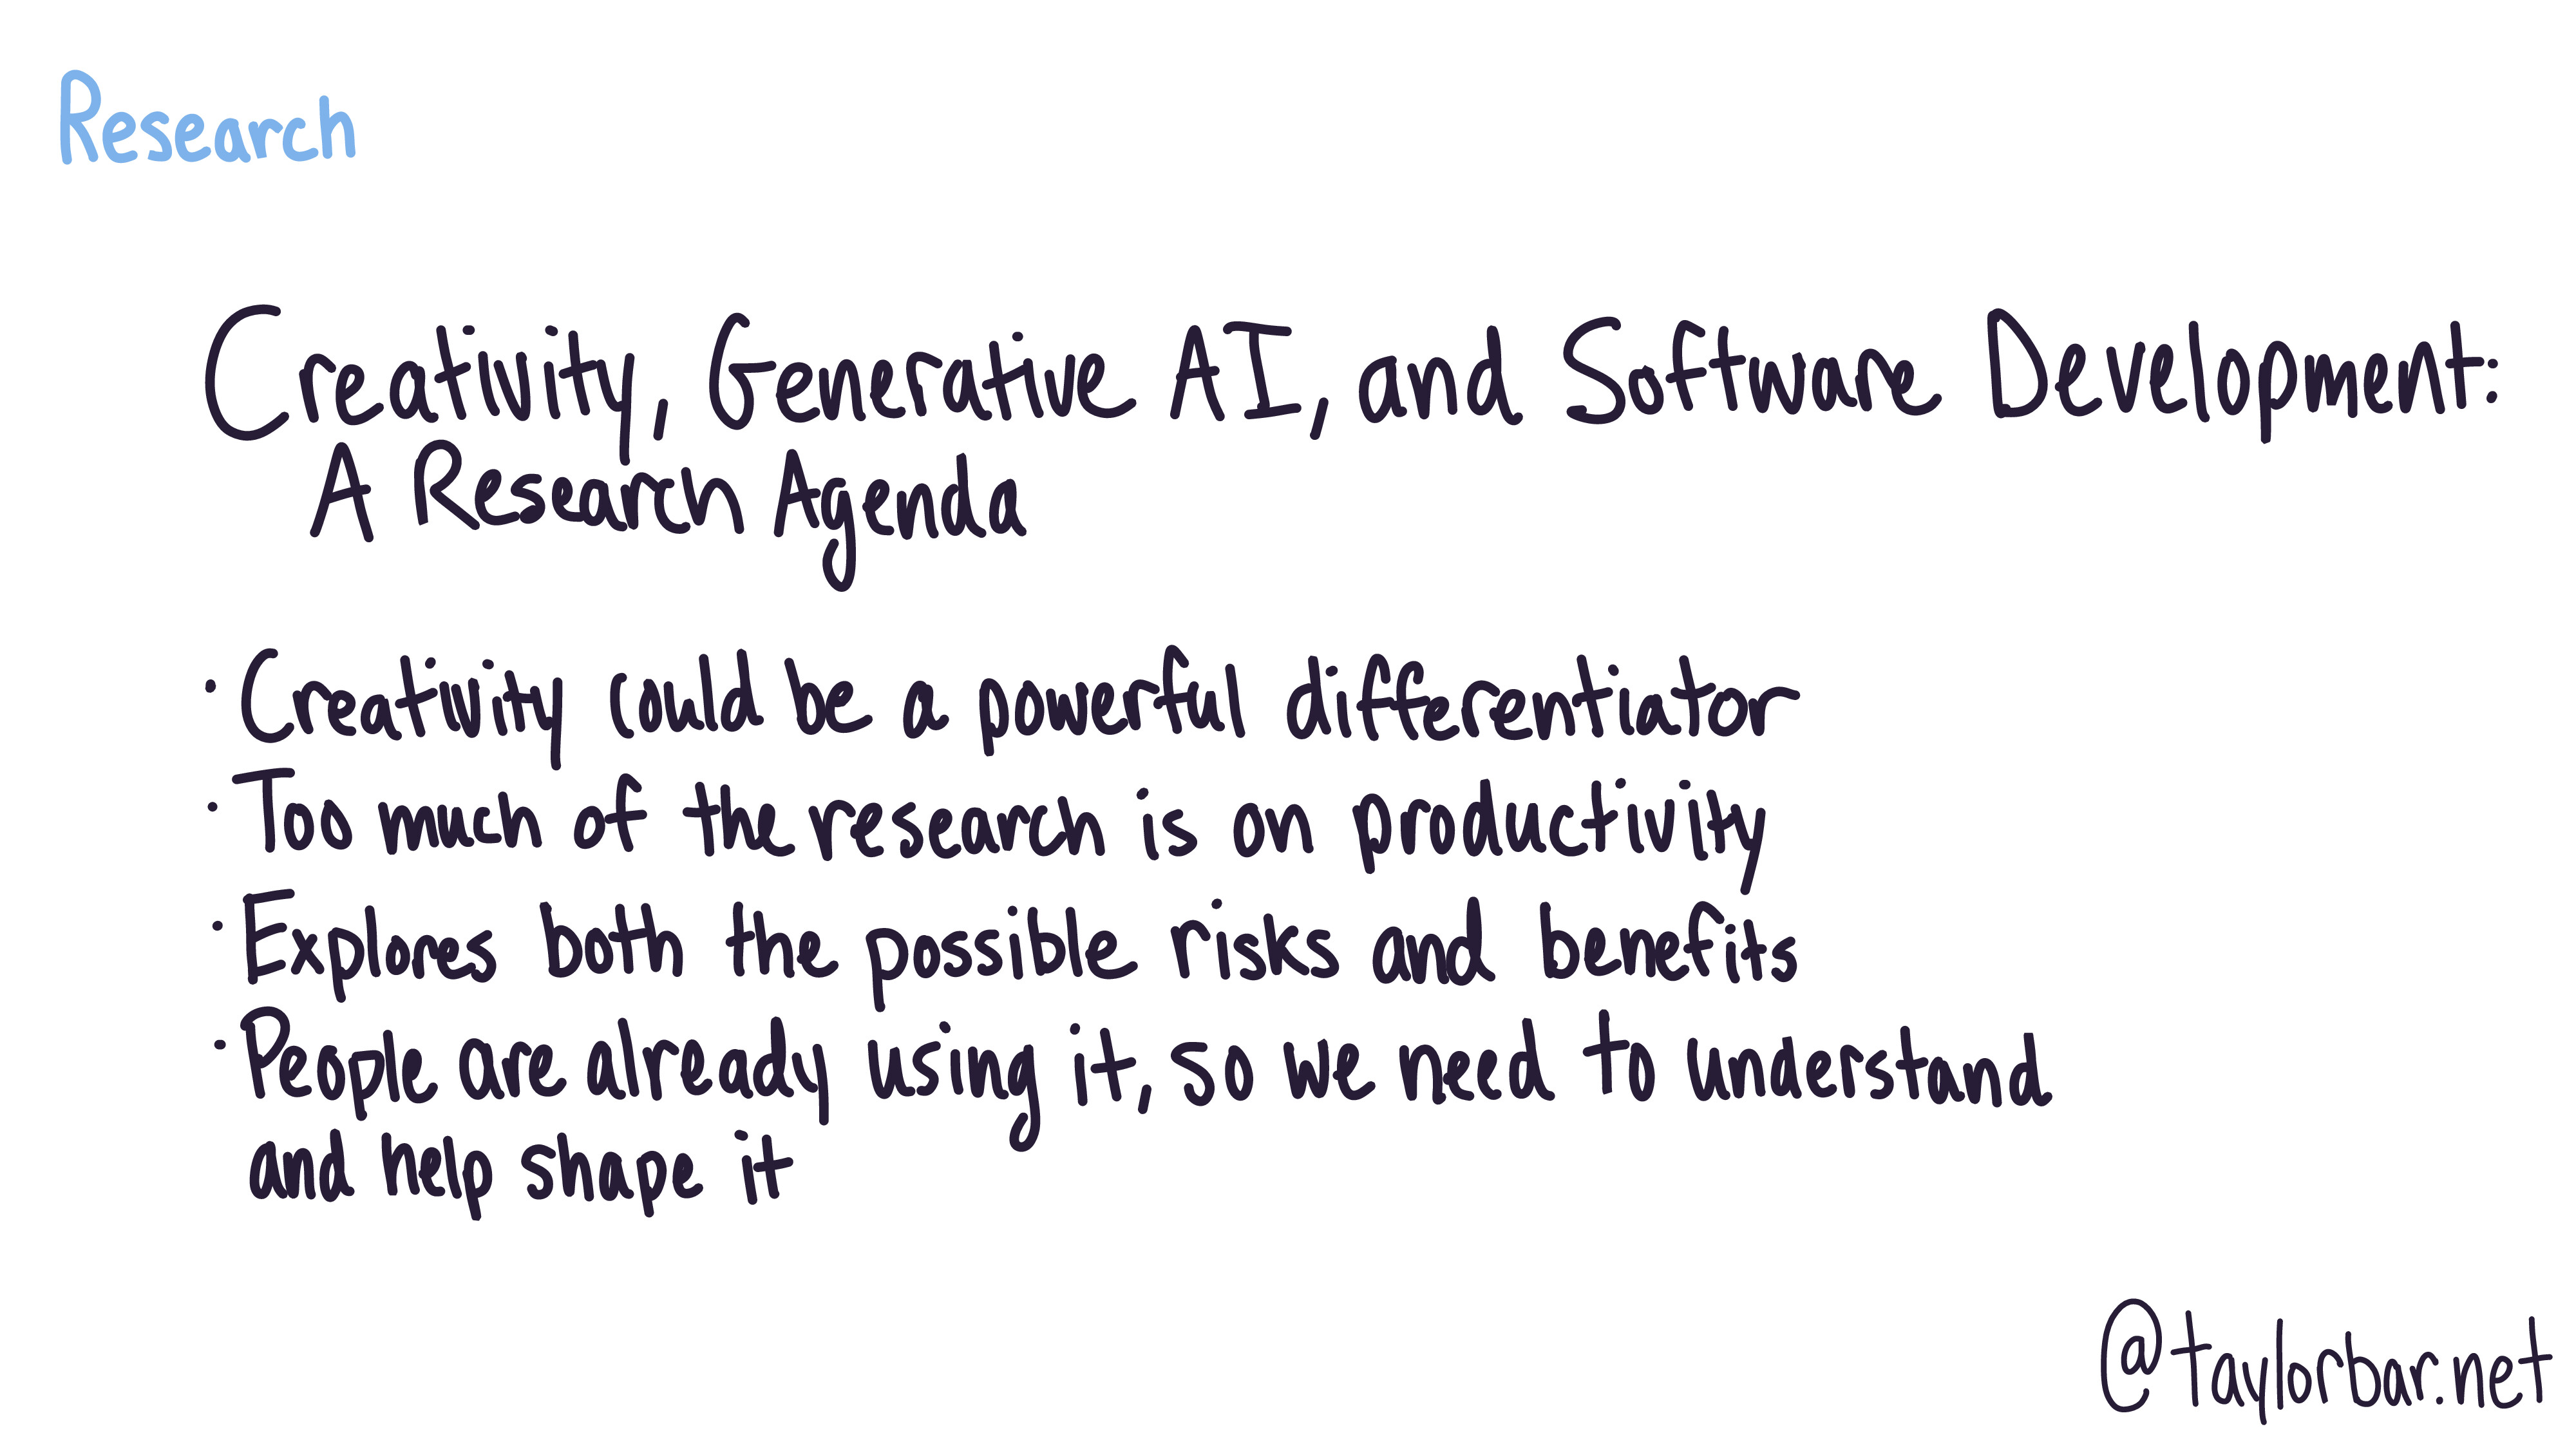 Research
Creativity, Generative AI, and Software Development:
A Research Agenda
· Creativity could be a powerful differentiator
· Too much of the research is on productivity
· Explores both the possible risks and benefits
· People are already using it, so we need to understand
and help shape it
@taylorbar.net